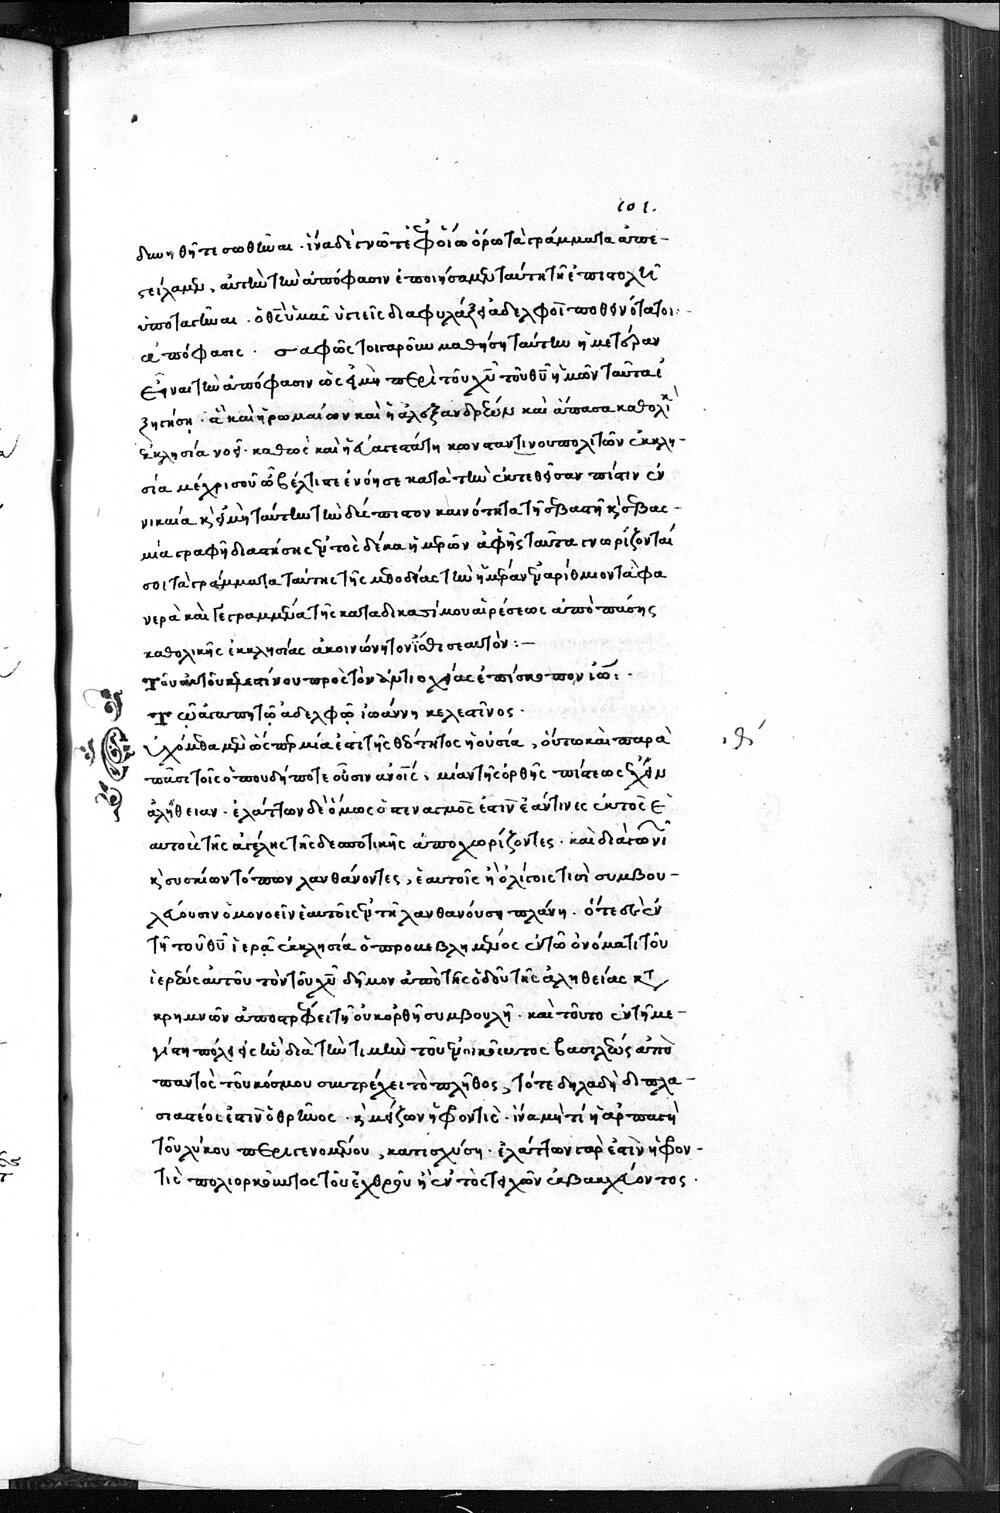 101.
δυνηθῆτε σωθῆναι. ἵνα δὲ γνῶτε ἐφ' οἵῳ ὅρῳ τὰ γράμματα ἀπε-
στείλαμεν, αὐτὴν τὴν ἀπόφασιν ἐποιήσαμεν ταύτῃ τῇ ἐπιστολῇ
ὑποταγῆναι. ὁ θεὸς ὑμᾶς ὑγιεῖς διαφυλάξει ἀδελφοὶ ποθεινότατοι:
ἀπόφασις. σαφῶς τοιγαροῦν μαθήσῃ ταύτην ἡμετέραν
εἶναι τὴν ἀπόφασιν ὡς εἰ μὴ περὶ τοῦ χῦ τοῦ θῦ ἡμῶν ταῦτα
ἃ καὶ ἡ ῥωμαίων καὶ ἡ ἀλεξανδρέων καὶ ἅπασα καθολικὴ
ἐκκλησία νοεῖ. καθὼς καὶ ἡ κωνσταντινουπολιτῶν ἐκκλη-
σία μέχρι σοῦ ὦ βέλτιστε ἐνόησε κατὰ τὴν ἐκτεθεῖσαν πίστιν ἐν
νικαίᾳ κ εἰ μὴ ταύτην τὴν δύσπιστον καινότητα τῇ σαφεῖ κ
γραφῇ ἐντὸς δέκα ἡμερῶν ἀφ' ἧς ταῦτα γνωρίζονταί
σοι τὰ γράμματα ταύτης τῆς μεθοδείας τὴν ἡμέραν ἐναρίθμιον τὰ φα
νερὰ καὶ γεγραμμένα τῆς καταδικασίμου αἱρέσεως ἀπὸ πάσης
καθολικῆς ἐκκλησίας ἀκοινώνητον σεαυτόν:—
Τοῦ αὐτοῦ κελεστίνου πρὸς τὸν ἀντιοχείας ἐπίσκοπον ἰω:.
Τῷ ἀγαπητῷ ἀδελφῷ ἰωάννῃ κελεστῖνος.
Εὐχόμεθα μὲν ὥσπερ μία ἐστι τῆς θεότητος ἡ οὐσία, οὕτω καὶ παρὰ
πᾶσι τοῖς ὁπουδήποτε οὖσιν ἀνοις, μίαν τῆς ὀρθῆς πίστεως ἔχειν
ἀλήθειαν. ἐλάττων δὲ ὅμως ὁ στεναγμός ἐστιν ἐάν τινες ἐκτὸς ἑ
αυτοὺς τῆς ἀγέλης τῆς δεσποτικῆς ἀποχωρίζοντες. καὶ διὰ
κ συσκίων τόπων λανθάνοντες, ἑαυτοῖς ἢ ὀλίγοις τισὶ συμβου-
λεύουσιν ὁμονοεῖν ἑαυτοῖς ἐν τῇ λανθανούσῃ πλάνῃ. ὅτε δὲ ἐν
τῇ τοῦ θῦ ἱερᾷ ἐκκλησίᾳ ὁ προσβεβλημένος ἐν τῷ ὀνόματι τοῦ
ἱερέως αὐτοῦ τὸν τοῦ χῦ δῆμον ἀπὸ τῆς ὁδοῦ τῆς ἀληθείας κτ
κρημνῶν ἀποστρέφει τῇ οὐκ ὀρθῇ συμβουλῇ. καὶ τοῦτο ἐν τῇ με-
γίστῃ πόλει εἰς ἣν διὰ τὴν τιμὴν τοῦ ἐνοικοῦντος βασιλέως ἀπὸ
παντὸς τοῦ κόσμου συντρέχει τὸ πλῆθος, τότε δηλαδὴ διπλα-
σιαστέος ἐστὶν ὁ θρῆνος. κ μείζων ἡ φροντίς. ἵνα μή τι ἡ ἁρπαγὴ
τοῦ λύκου περιγενομένου, κατισχύσῃ. ἐλάττων γάρ ἐστιν ἡ φρον-
τὶς πολιορκοῦντος τοῦ ἐχθροῦ ἢ ἐντὸς τειχῶν ἐκβακχεύοντος.